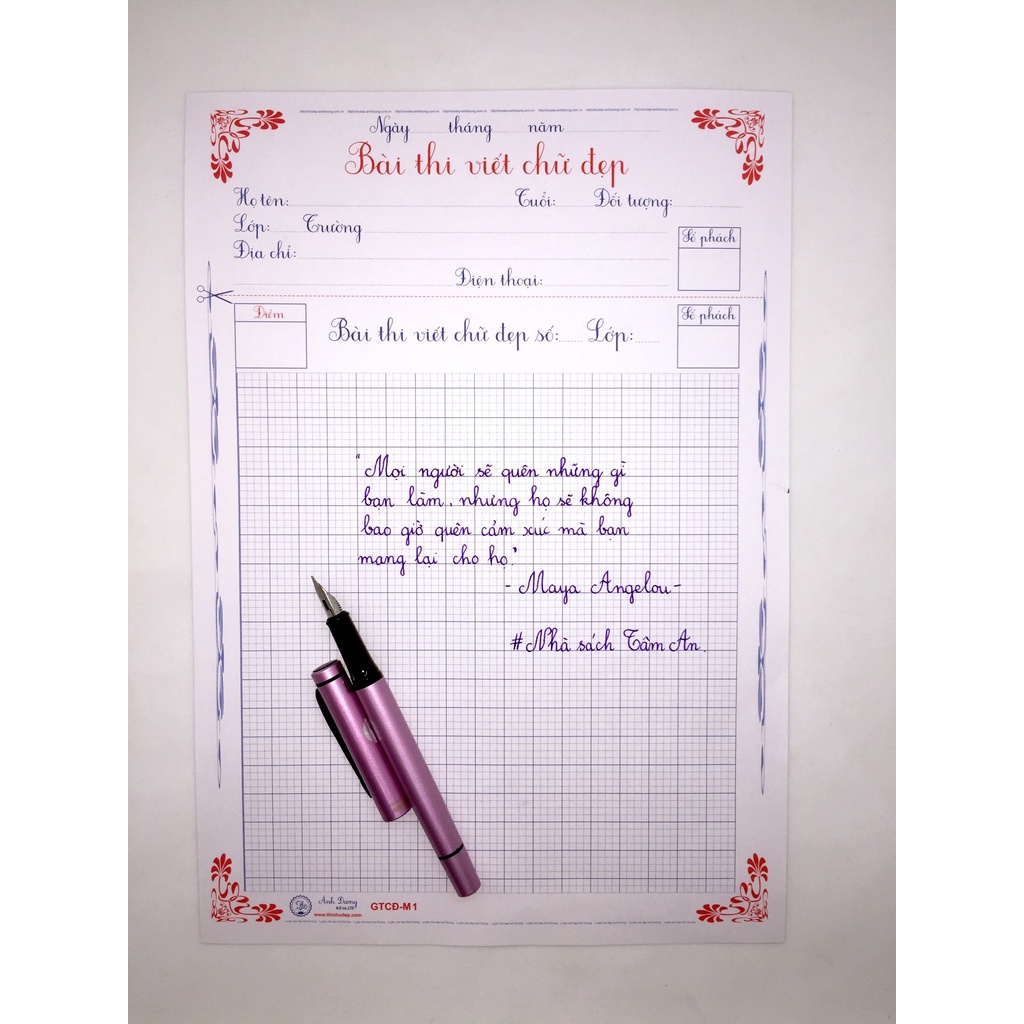 Ngày tháng năm
Bài thi viết chữ đẹp
Họ tên: Tuổi: Đối tượng:
Lớp: Trường
Số phách
Địa chỉ:
Điện thoại:
Điểm
Số phách
Bài thi viết chữ đẹp số: Lớp:
"Mọi người sẽ quên những gì
bạn làm, nhưng họ sẽ không
bao giờ quên cảm xúc mà bạn
mang lại cho họ."
- Maya Angelou -
#Nhà sách Tâm An.
Ánh Dương
www.thichudep.com
GTCĐ-M1